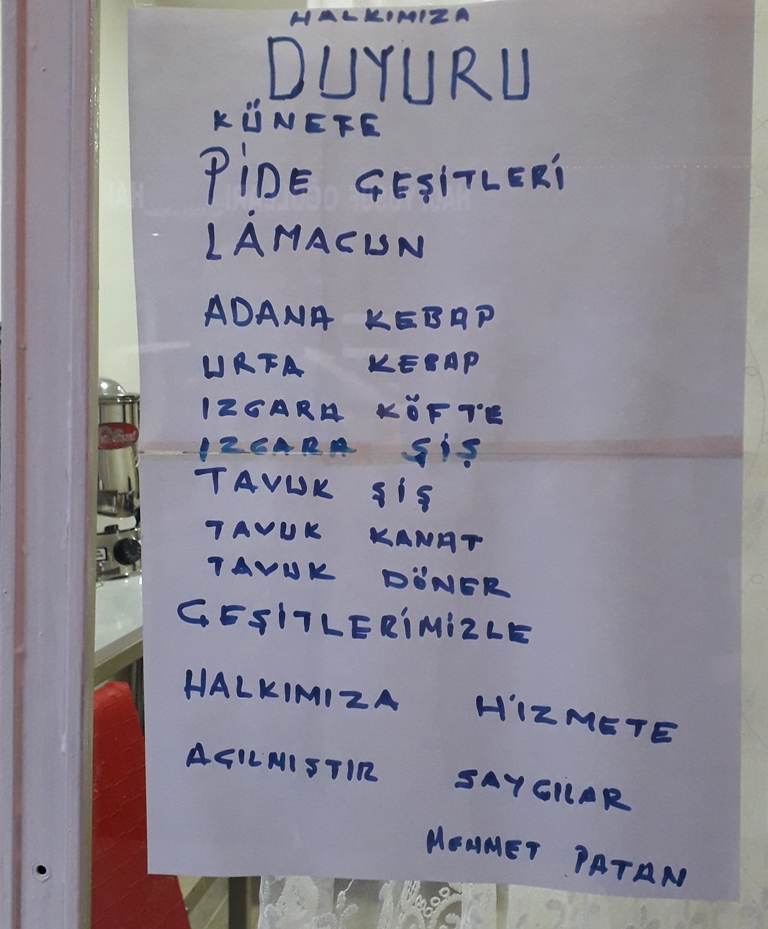 HALKIMIZA
DUYURU
KÜNEFE
PİDE ÇEŞİTLERİ
LÁMACUN
ADANA KEBAP
URFA KEBAP
IZGARA KÖFTE
IZGARA ŞİŞ
TAVUK ŞİŞ
TAVUK KANAT
TAVUK DÖNER
ÇEŞİTLERİMİZLE
HALKIMIZA HİZMETE
AÇILMIŞTIR SAYGILAR
MEHMET PATAN